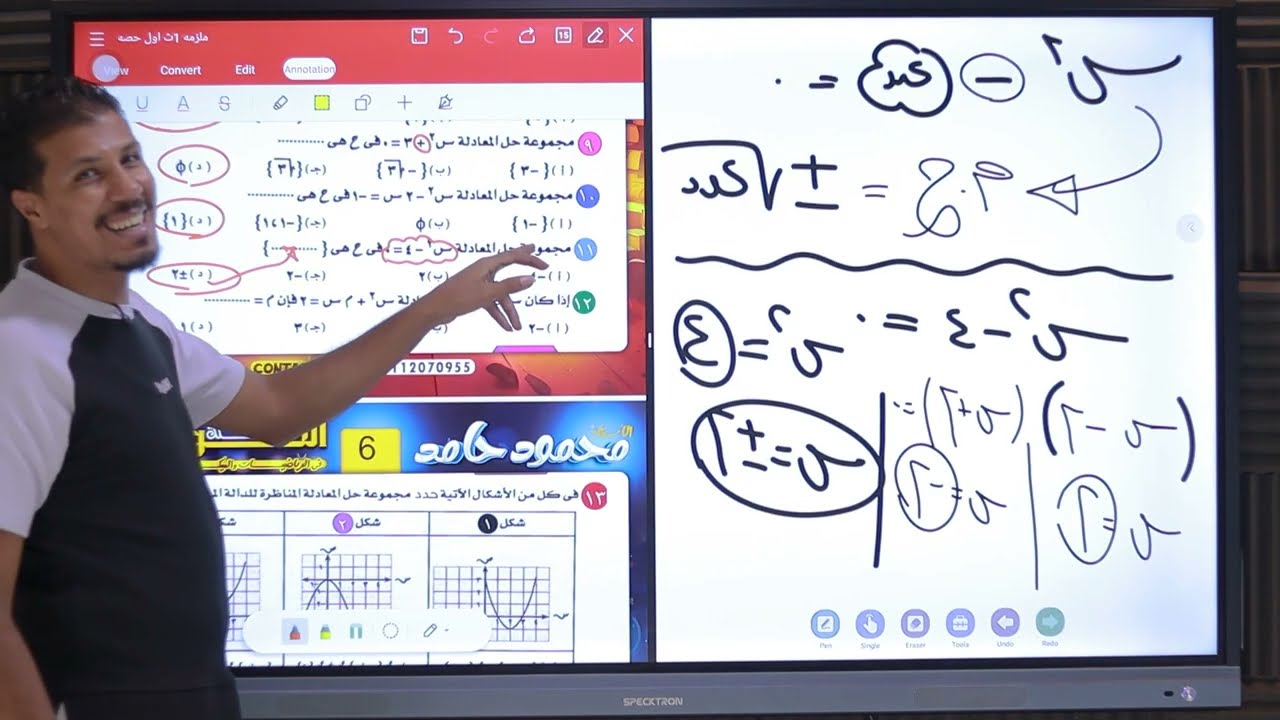 ملزمه 1ث اول حصه
15
View Convert Edit Annotation
٩ مجموعة حل المعادلة س٢ + ٣ = ٠ فى ع هى ............
(أ) {-٣} (ب) {-√٣} (جـ) {√٣} (د) φ
١٠ مجموعة حل المعادلة س٢ - ٢ س = -١ فى ع هى ............
(أ) {-١} (ب) φ (جـ) {-١،١} (د) {١}
١١ مجموعة حل المعادلة س٢ - ٤ = ٠ فى ع هى {............}
(أ) -٤ (ب) ٢ (جـ) -٢ (د) ±٢
١٢ إذا كان س٢ + م س = ٢ فإن م = ............
(أ) -٢ (ب) (جـ) ٣ (د)
112070955
محمود حامد
6
١٣ فى كل من الأشكال الآتية حدد مجموعة حل المعادلة المناظرة للدالة
شكل ١ شكل ٢
س٢ - عدد = ٠
م.ح = ±√عدد
س٢ - ٤ = ٠
س٢ = ٤
(س - ٢) (س + ٢) = ٠
س = ±٢
س = ٢
س = -٢
Pen Single Eraser Tools Undo Redo
SPECKTRON